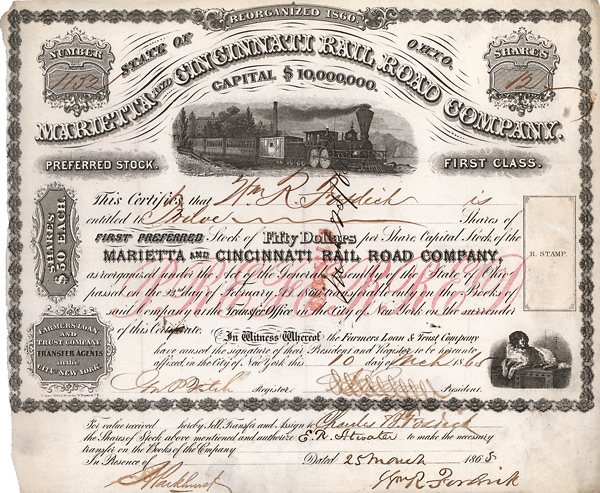 REORGANIZED 1860
STATE OF OHIO.
NUMBER
1153
SHARES
12
MARIETTA AND CINCINNATI RAIL ROAD COMPANY.
CAPITAL $10,000,000.
PREFERRED STOCK.
FIRST CLASS.
This Certifies that Wm R Fosdick is
entitled to Twelve Shares of
FIRST PREFERRED Stock of Fifty Dollars per Share, Capital Stock of the
MARIETTA AND CINCINNATI RAIL ROAD COMPANY,
as reorganized under the Act of the General Assembly of the State of Ohio
passed on the day of February A.D. 1860 transferable only on the Books of
said Company at the Transfer Office in the City of New York on the surrender
of this Certificate.
PREFERRED
SHARES $50 EACH
R. STAMP.
FARMERS LOAN
AND
TRUST COMPANY
TRANSFER AGENTS
in the
CITY NEW YORK.
In Witness Whereof the Farmers Loan & Trust Company
have caused the signature of their President and Register to be hereunto
affixed in the City of New York this 10 day of March 186
Register.
President.
For value received hereby Sell, Transfer and Assign to Charles B Fosdick
the Shares of Stock above mentioned and authorize E. R. Atwater to make the necessary
transfer on the Books of the Company
In Presence of Dated 25 March 1868
Parkhurst
Wm R. Fosdick